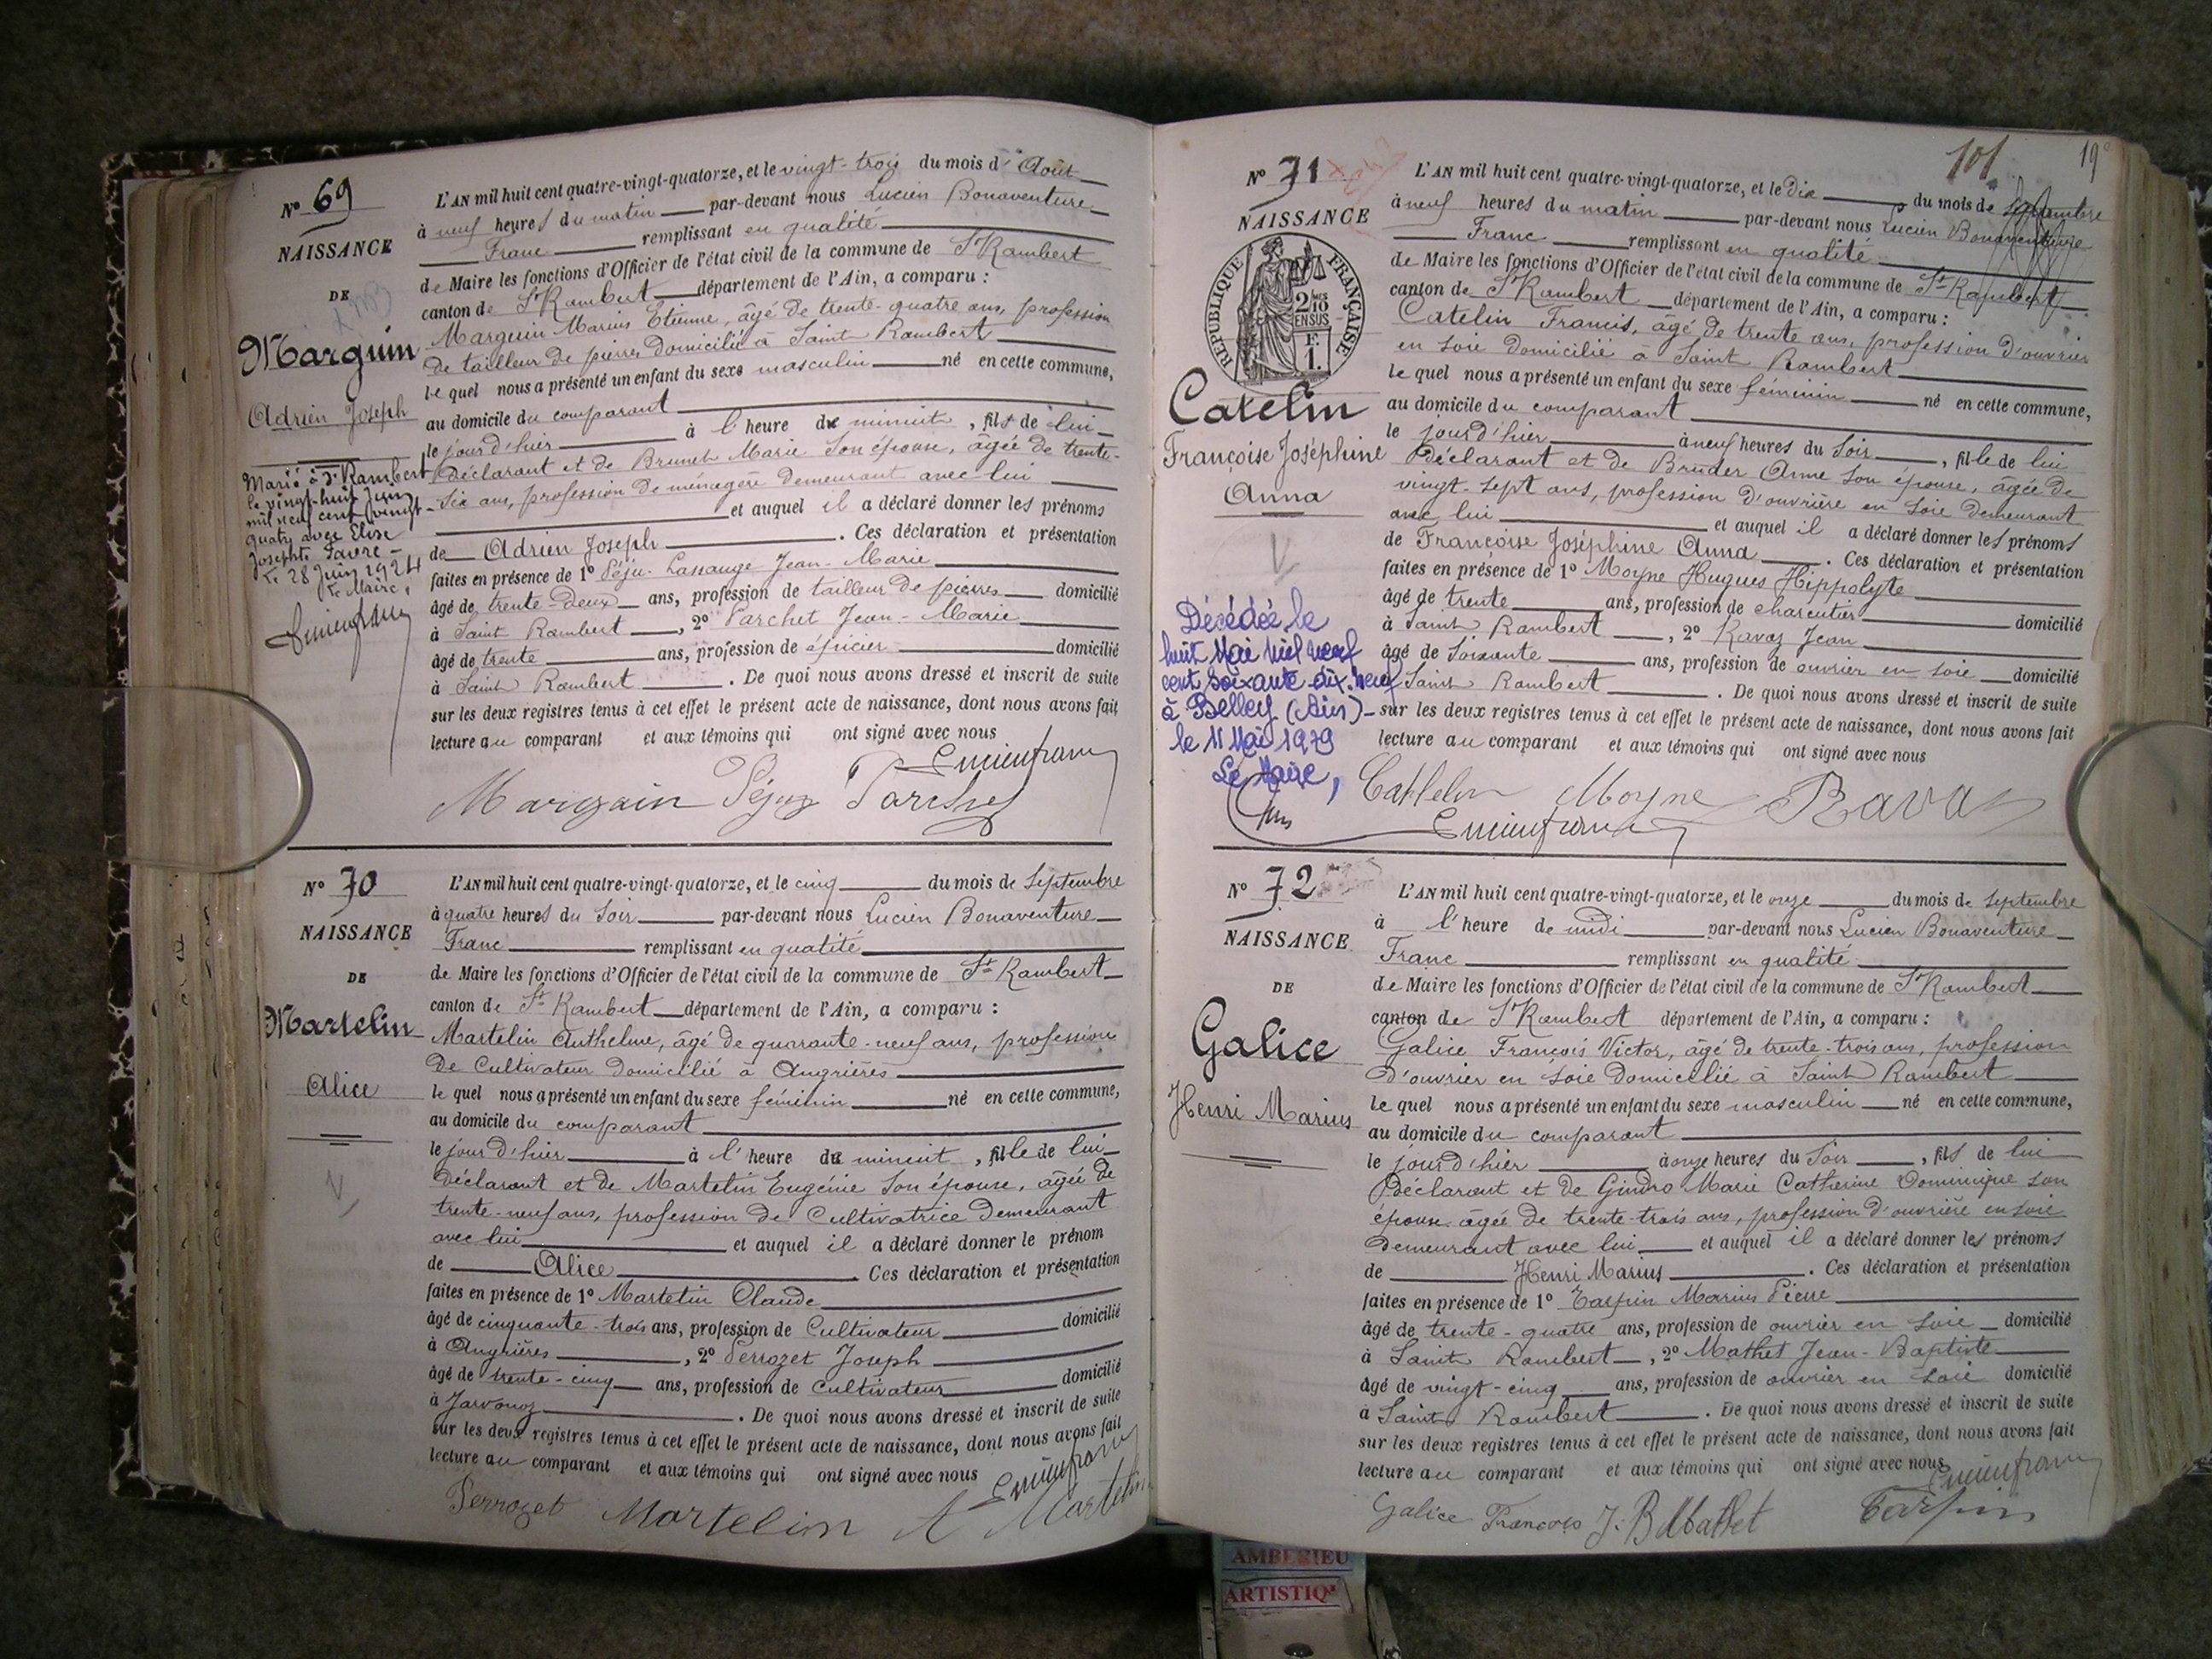 Nº 69
NAISSANCE
DE
Marguin
Adrien Joseph
Marié à St Rambert
le vingt-huit Juin
mil neuf cent vingt-
quatre avec Elise
Josephte Favre -
Le 28 Juin 1924
Le Maire,
L'AN mil huit cent quatre-vingt-quatorze, et le vingt-trois du mois d'Août
à neuf heures du matin par-devant nous Lucien Bonaventure
Franc remplissant en qualité
de Maire les fonctions d'Officier de l'état civil de la commune de St Rambert
canton de St Rambert département de l'Ain, a comparu :
Marguin Marius Etienne, âgé de trente-quatre ans, profession
de tailleur de pierres domicilié à Saint Rambert
lequel nous a présenté un enfant du sexe masculin né en cette commune,
au domicile du comparant
le jour d'hier à l'heure de minuit, fils de lui
Déclarant et de Brunet Marie son épouse, âgée de trente-
six ans, profession de ménagère demeurant avec lui
et auquel il a déclaré donner les prénoms
de Adrien Joseph. Ces déclaration et présentation
faites en présence de 1º Péju-Lassauge Jean-Marie
âgé de trente-deux ans, profession de tailleur de pierres domicilié
à Saint Rambert, 2º Parchet Jean-Marie
âgé de trente ans, profession de épicier domicilié
à Saint Rambert. De quoi nous avons dressé et inscrit de suite
sur les deux registres tenus à cet effet le présent acte de naissance, dont nous avons fait
lecture au comparant et aux témoins qui ont signé avec nous
Lucienfranc
Marguin Péju Parchet
Nº 70
NAISSANCE
DE
Martelin
Alice
L'AN mil huit cent quatre-vingt-quatorze, et le cinq du mois de Septembre
à quatre heures du soir par-devant nous Lucien Bonaventure
Franc remplissant en qualité
de Maire les fonctions d'Officier de l'état civil de la commune de St Rambert
canton de St Rambert département de l'Ain, a comparu :
Martelin Anthelme, âgé de quarante-neuf ans, profession
de Cultivateur domicilié à Angrières
lequel nous a présenté un enfant du sexe féminin né en cette commune,
au domicile du comparant
le jour d'hier à l'heure de minuit, fille de lui
Déclarant et de Martelin Eugénie son épouse, âgée de
trente-neuf ans, profession de Cultivatrice demeurant
avec lui et auquel il a déclaré donner le prénom
de Alice Ces déclaration et présentation
faites en présence de 1º Martelin Claude
âgé de cinquante-trois ans, profession de Cultivateur domicilié
à Angrières, 2º Perrozet Joseph
âgé de trente-cinq ans, profession de Cultivateur domicilié
à Javornoz. De quoi nous avons dressé et inscrit de suite
sur les deux registres tenus à cet effet le présent acte de naissance, dont nous avons fait
lecture au comparant et aux témoins qui ont signé avec nous
Lucienfranc
Perrozet Martelin A Martelin
101 19e
Nº 71
NAISSANCE
REPUBLIQUE FRANÇAISE
2/10
EN SUS
F.
1.
Catelin
Françoise Joséphine
Anna
Décédée le
huit Mai mil neuf
cent soixante dix-neuf
à Belley (Ain) -
le 11 Mai 1979
Le Maire,
L'AN mil huit cent quatre-vingt-quatorze, et le dix du mois de Septembre
à neuf heures du matin par-devant nous Lucien Bonaventure
Franc remplissant en qualité
de Maire les fonctions d'Officier de l'état civil de la commune de St Rambert
canton de St Rambert département de l'Ain, a comparu :
Catelin Francis, âgé de trente ans, profession d'ouvrier
en soie domicilié à Saint Rambert
lequel nous a présenté un enfant du sexe féminin né en cette commune,
au domicile du comparant
le jour d'hier à neuf heures du soir, fille de lui
Déclarant et de Bruder Anne son épouse, âgée de
vingt-sept ans, profession d'ouvrière en soie demeurant
avec lui et auquel il a déclaré donner les prénoms
de Françoise Joséphine Anna. Ces déclaration et présentation
faites en présence de 1º Moyne Hugues Hippolyte
âgé de trente ans, profession de charcutier domicilié
à Saint Rambert, 2º Ravaz Jean
âgé de soixante ans, profession de ouvrier en soie domicilié
Saint Rambert. De quoi nous avons dressé et inscrit de suite
sur les deux registres tenus à cet effet le présent acte de naissance, dont nous avons fait
lecture au comparant et aux témoins qui ont signé avec nous
Cattelin Moyne Ravaz
Lucienfranc
Nº 72
NAISSANCE
DE
Galice
Henri Marius
L'AN mil huit cent quatre-vingt-quatorze, et le onze du mois de Septembre
à l'heure de midi par-devant nous Lucien Bonaventure
Franc remplissant en qualité
de Maire les fonctions d'Officier de l'état civil de la commune de St Rambert
canton de St Rambert département de l'Ain, a comparu :
Galice François Victor, âgé de trente-trois ans, profession
d'ouvrier en soie domicilié à Saint Rambert
lequel nous a présenté un enfant du sexe masculin né en cette commune,
au domicile du comparant
le jour d'hier à onze heures du soir, fils de lui
Déclarant et de Gindro Marie Catherine Dominique son
épouse âgée de trente-trois ans, profession d'ouvrière en soie
demeurant avec lui et auquel il a déclaré donner les prénoms
de Henri Marius. Ces déclaration et présentation
faites en présence de 1º Tarpin Marius Pierre
âgé de trente-quatre ans, profession de ouvrier en soie domicilié
à Saint Rambert, 2º Mathet Jean-Baptiste
âgé de vingt-cinq ans, profession de ouvrier en soie domicilié
à Saint Rambert. De quoi nous avons dressé et inscrit de suite
sur les deux registres tenus à cet effet le présent acte de naissance, dont nous avons fait
lecture au comparant et aux témoins qui ont signé avec nous
Lucienfranc
Galice François J. B Mathet Tarpin
AMBERIEU
ARTISTIQ